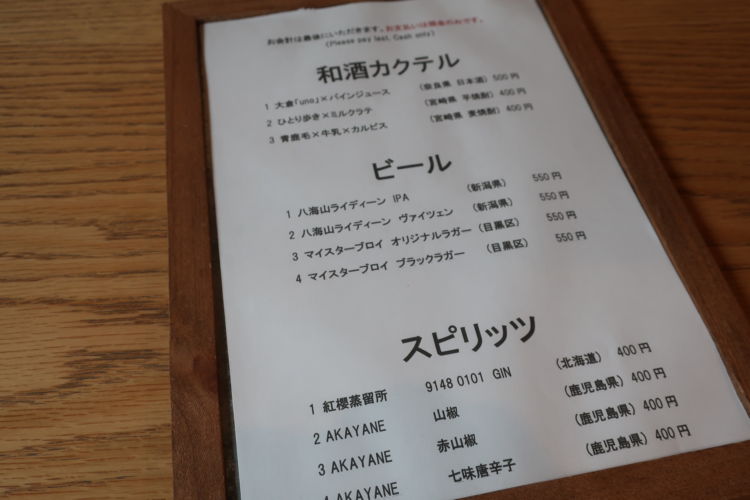 お会計は最後にいただきます。お支払いは現金のみです。
(Please pay last, Cash only)
和酒カクテル
1 大倉「uno」×パインジュース (奈良県 日本酒) 500円
2 ひとり歩き×ミルクラテ (宮崎県 芋焼酎) 400円
3 青鹿毛×牛乳×カルピス (宮崎県 麦焼酎) 400円
ビール
1 八海山ライディーン IPA (新潟県) 550円
2 八海山ライディーン ヴァイツェン (新潟県) 550円
3 マイスターブロイ オリジナルラガー (目黒区) 550円
4 マイスターブロイ ブラックラガー (目黒区) 550円
スピリッツ
1 紅櫻蒸留所 9148 0101 GIN (北海道) 400円
2 AKAYANE 山椒 (鹿児島県) 400円
3 AKAYANE 赤山椒 (鹿児島県) 400円
4 AKAYANE 七味唐辛子 (鹿児島県) 400円